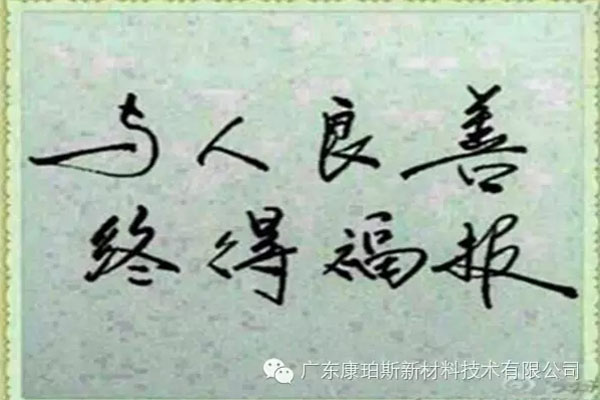 与人良善
终得福报
广东康珀斯新材料技术有限公司